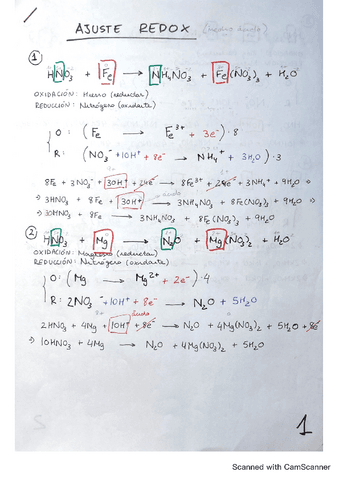 1
AJUSTE REDOX
① HNO₃ + Fe → NH₄NO₃ + Fe(NO₃)₃ + H₂O
OXIDACIÓN: Hierro (reductor)
REDUCCIÓN: Nitrógeno (oxidante)
O: (Fe → Fe³⁺ + 3e⁻)·8
R: (NO₃⁻ + 10H⁺ + 8e⁻ → NH₄⁺ + 3H₂O)·3
8Fe + 3NO₃⁻ + 30H⁺ + 24e⁻ → 8Fe³⁺ + 24e⁻ + 3NH₄⁺ + 9H₂O ⇒
⇒ 3HNO₃ + 8Fe + 30H⁺ → 3NH₄NO₃ + 8Fe(NO₃)₃ + 9H₂O ⇒
⇒ 30HNO₃ + 8Fe → 3NH₄NO₃ + 8Fe(NO₃)₃ + 9H₂O
② HNO₃ + Mg → N₂O + Mg(NO₃)₂ + H₂O
OXIDACIÓN: Magnesio (reductor)
REDUCCIÓN: Nitrógeno (oxidante)
O: (Mg → Mg²⁺ + 2e⁻)·4
R: 2NO₃⁻ + 10H⁺ + 8e⁻ → N₂O + 5H₂O
ácido
2HNO₃ + 4Mg + 10H⁺ + 8e⁻ → N₂O + 4Mg(NO₃)₂ + 5H₂O + 8e⁻
⇒ 10HNO₃ + 4Mg → N₂O + 4Mg(NO₃)₂ + 5H₂O
1
Scanned with CamScanner